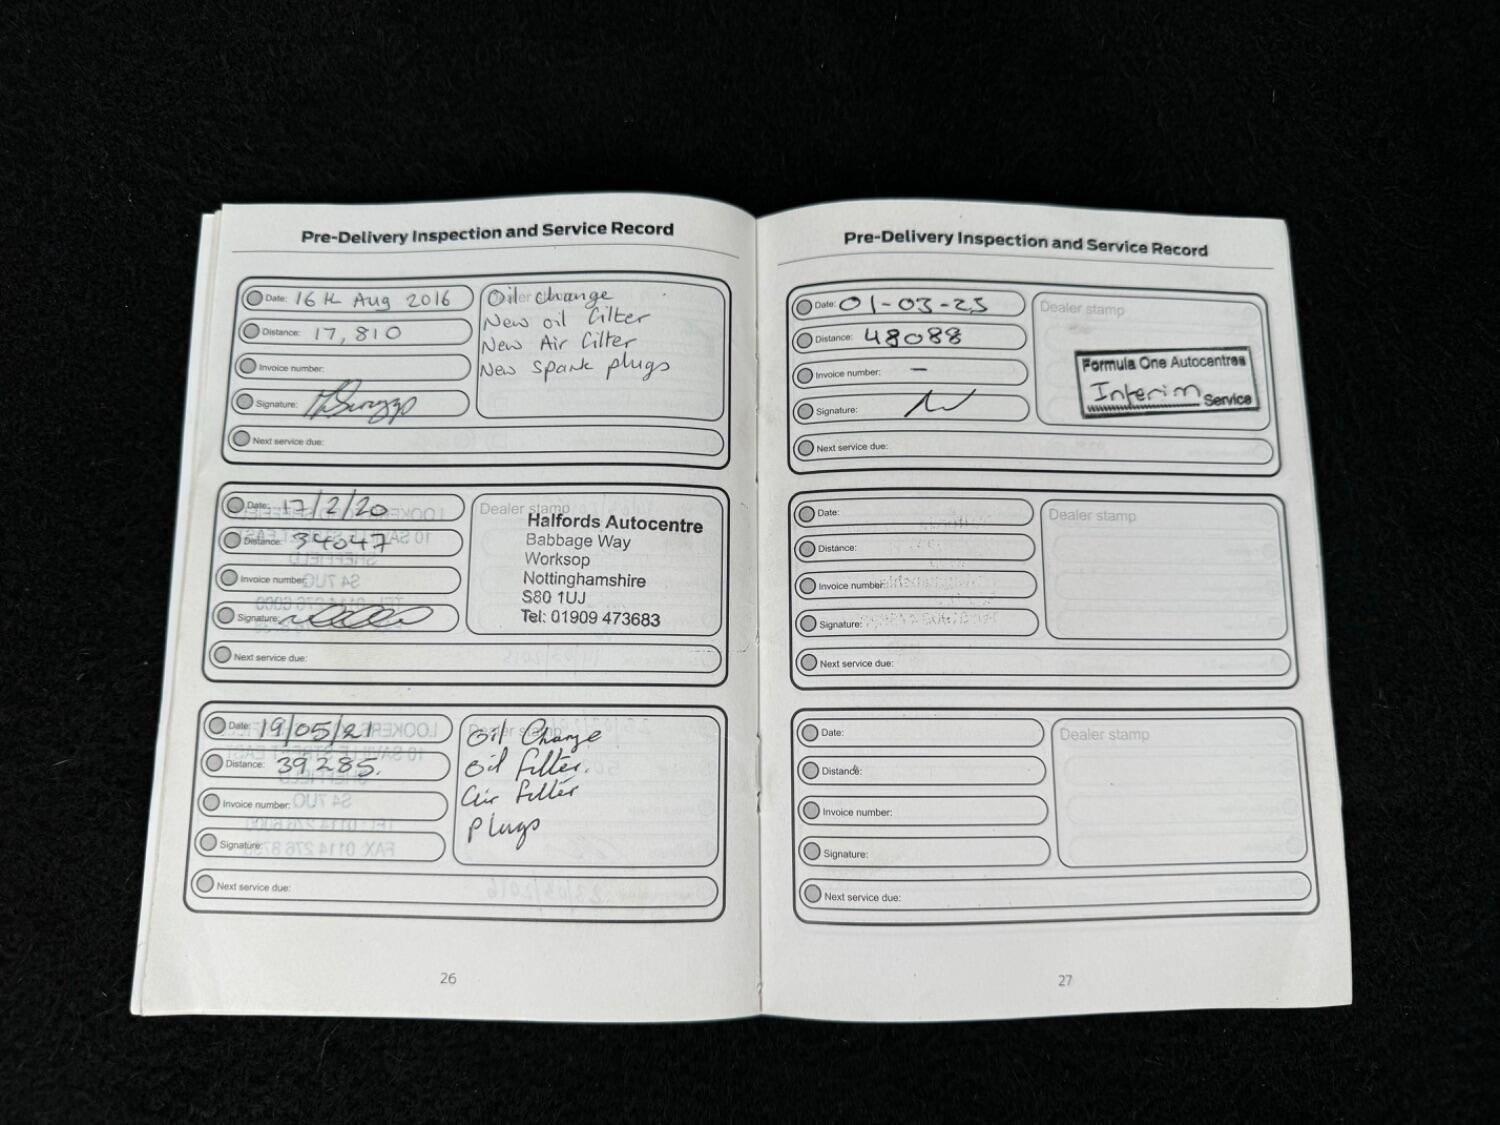 Pre-Delivery Inspection and Service Record
Date: 16th Aug 2016
Distance: 17,810
Invoice number:
Signature:
Next service due:
Oil change
New oil filter
New Air filter
New spark plugs
Date: 17/2/20
Distance: 34047
Invoice number:
Signature:
Next service due:
Dealer stamp
Halfords Autocentre
Babbage Way
Worksop
Nottinghamshire
S80 1UJ
Tel: 01909 473683
Date: 19/05/21
Distance: 39285.
Invoice number:
Signature:
Next service due:
Dealer stamp
Oil Change
Oil filter.
Air filter
Plugs
26
Pre-Delivery Inspection and Service Record
Date: 01-03-23
Distance: 48088
Invoice number: -
Signature:
Next service due:
Dealer stamp
Formula One Autocentres
Interim Service
Date:
Distance:
Invoice number:
Signature:
Next service due:
Dealer stamp
Date:
Distance:
Invoice number:
Signature:
Next service due:
Dealer stamp
27